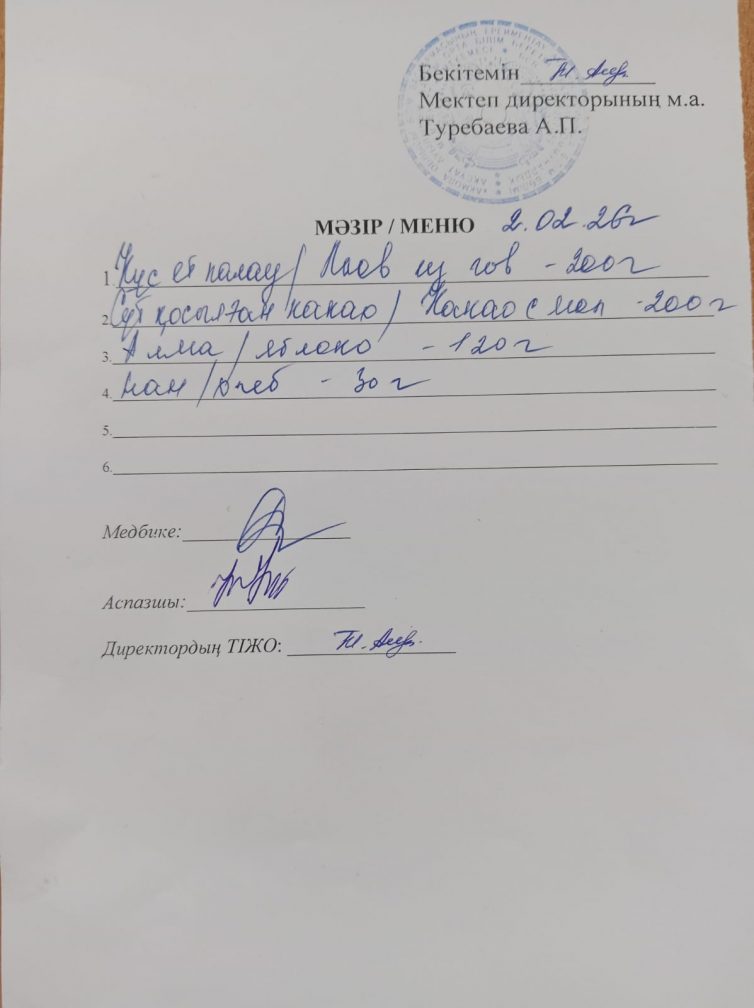 Бекітемін
Мектеп директорының м.а.
Туребаева А.П.
МӘЗІР / МЕНЮ 2.02.26г
1. Құс ет палау / Плов из гов - 200 г
2. Сүт қосылған какао / Какао с мол - 200 г
3. Алма / яблоко - 120 г
4. нан / хлеб - 30 г
5.
6.
Медбике:
Аспазшы:
Директордың ТІЖО: